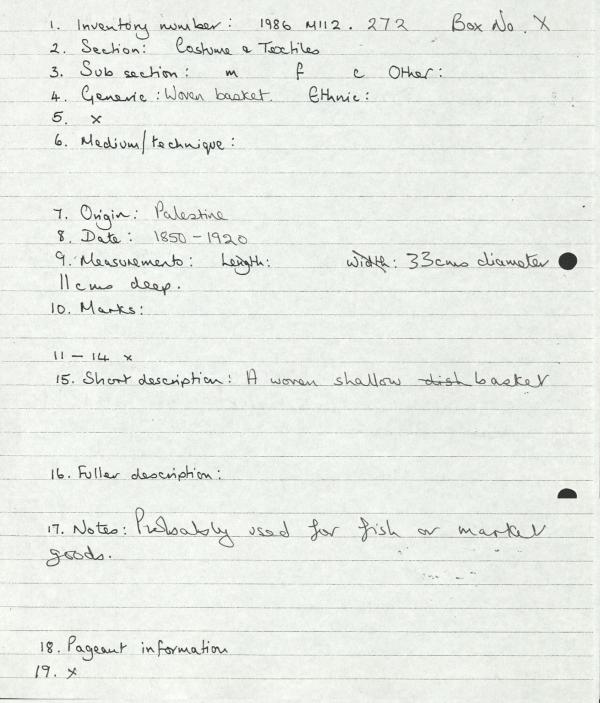 1. Inventory number: 1986 M112.272 Box No. X
2. Section: Costume & Textiles
3. Sub section: m f c Other:
4. Generic: Woven basket. Ethnic:
5. x
6. Medium/technique:
7. Origin: Palestine
8. Date: 1850-1920
9. Measurements: Length: width: 33cms diameter
11cms deep.
10. Marks:
11 - 14 x
15. Short description: A woven shallow dish basket
16. Fuller description:
17. Notes: Probably used for fish or market
goods.
18. Pageant information
19. x